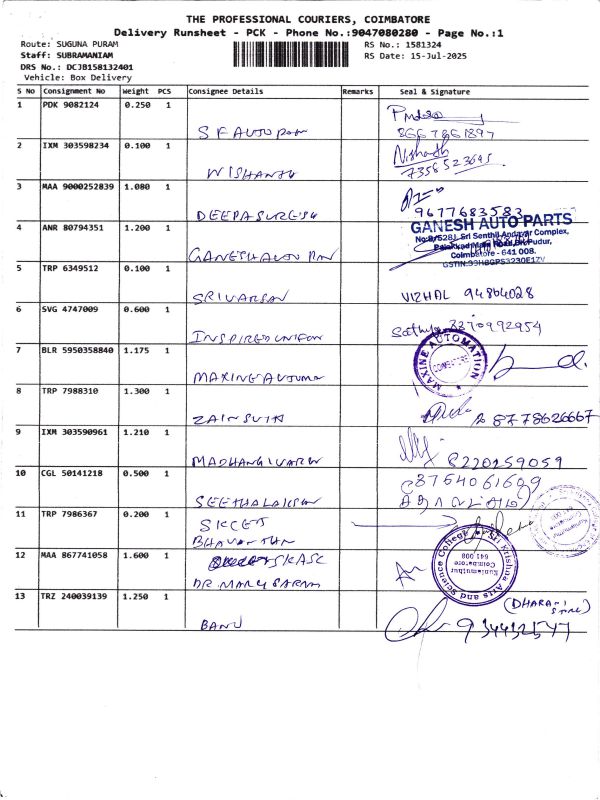 THE PROFESSIONAL COURIERS, COIMBATORE
Delivery Runsheet - PCK - Phone No.:9047080280 - Page No.:1
Route: SUGUNA PURAM
RS No.: 1581324
Staff: SUBRAMANIAM
RS Date: 15-Jul-2025
DRS No.: DCJB158132401
Vehicle: Box Delivery
S No Consignment No Weight PCS Consignee Details Remarks Seal & Signature
1 PDK 9082124 0.250 1
S F AUTO
2 IXM 303598234 0.100 1
NISHANTH Nishanth
7358523695
3 MAA 9000252839 1.080 1
DEEPA SURESH 9677683583
4 ANR 80794351 1.200 1
GANESH AUTO GANESH AUTO PARTS
Coimbatore - 641 008.
5 TRP 6349512 0.100 1
SRIVARSAN VIZHAL 94864028
6 SVG 4747009 0.600 1
INSPIRED UNIFOM Sathya
7 BLR 5950358840 1.175 1
MAXINE AUTOMA MAXINE AUTOMATION COIMBATORE
8 TRP 7988310 1.300 1
ZAIN 8778626667
9 IXM 303590961 1.210 1
8220259059
10 CGL 50141218 0.500 1
SEETHALAKSHM 8754061609
11 TRP 7986367 0.200 1
SKCET
12 MAA 867741058 1.600 1
SKASC
DR. MARY
Sri Krishna Arts and Science College
Kuniamuthur
Coimbatore
641 008
13 TRZ 240039139 1.250 1
BANU